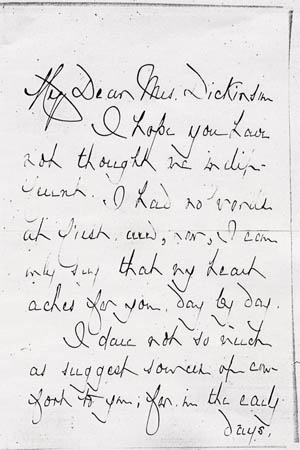 My Dear Mrs. Dickinson
I hope you have
not thought me indif-
ferent. I had no words
at first and, now, I can
only say that my heart
aches for you, day by day.
I dare not so much
as suggest sources of com-
fort to you; for, in the early
days,